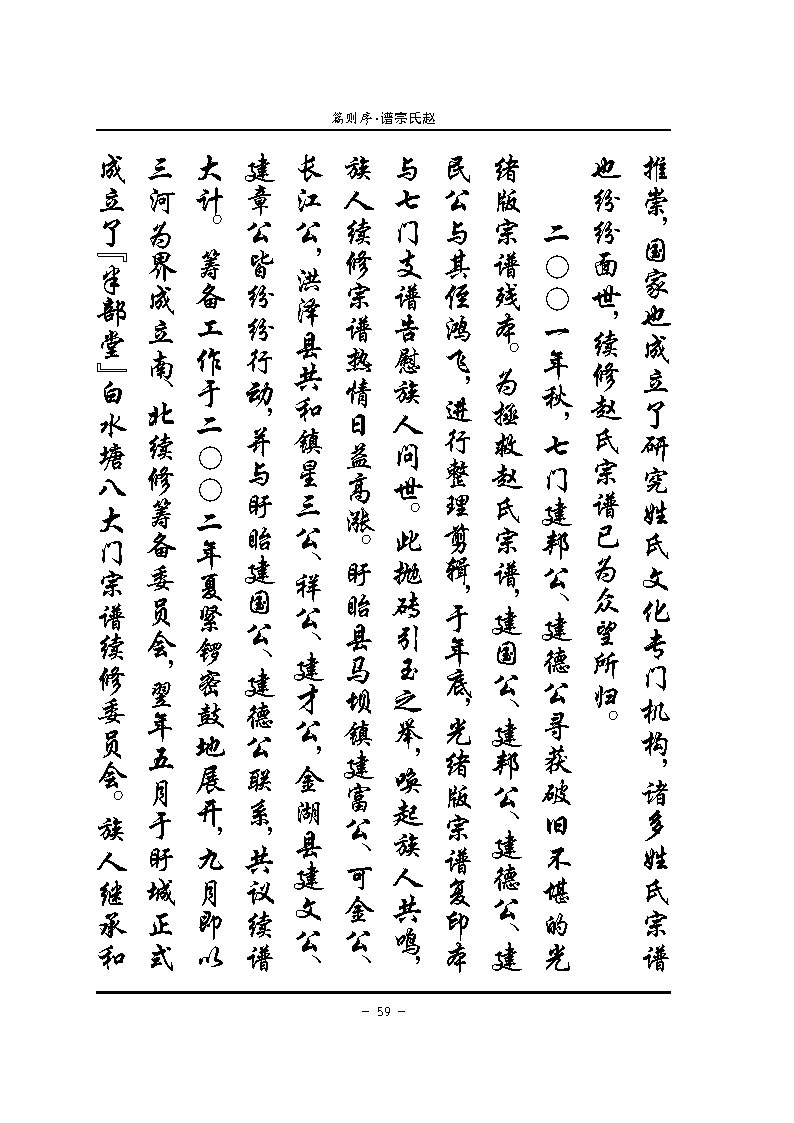 篇则序·谱宗氏赵
推崇，国家也成立了研究姓氏文化专门机构，诸多姓氏宗谱
也纷纷面世，续修赵氏宗谱已为众望所归。
二〇〇一年秋，七门建邦公、建德公寻获破旧不堪的光
绪版宗谱残本。为拯救赵氏宗谱，建国公、建邦公、建德公、建
民公与其侄鸿飞，进行整理剪辑，于年底，光绪版宗谱复印本
与七门支谱告慰族人问世。此抛砖引玉之举，唤起族人共鸣，
族人续修宗谱热情日益高涨。盱眙县马坝镇建富公、可金公、
长江公，洪泽县共和镇星三公、祥公、建才公，金湖县建文公、
建章公皆纷纷行动，并与盱眙建国公、建德公联系，共议续谱
大计。筹备工作于二〇〇二年夏紧锣密鼓地展开，九月即以
三河为界成立南、北续修筹备委员会，翌年五月于盱城正式
成立了『半部堂』白水塘八大门宗谱续修委员会。族人继承和
- 59 -